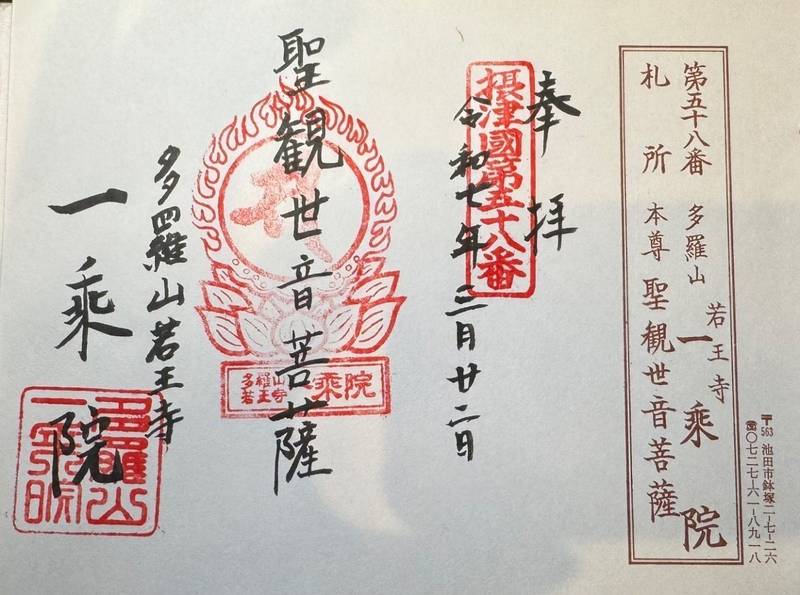 第五十八番 多羅山 若王寺 一乘院
札所 本尊 聖観世音菩薩
〒563 池田市鉢塚二-七-二六
☎〇七二七-六一-八九一八
奉拝
摂津國第五十八番
令和七年三月廿二日
聖観世音菩薩
多羅山若王寺
一乘院
多羅山
若王寺
乘院
多羅山
一乘院